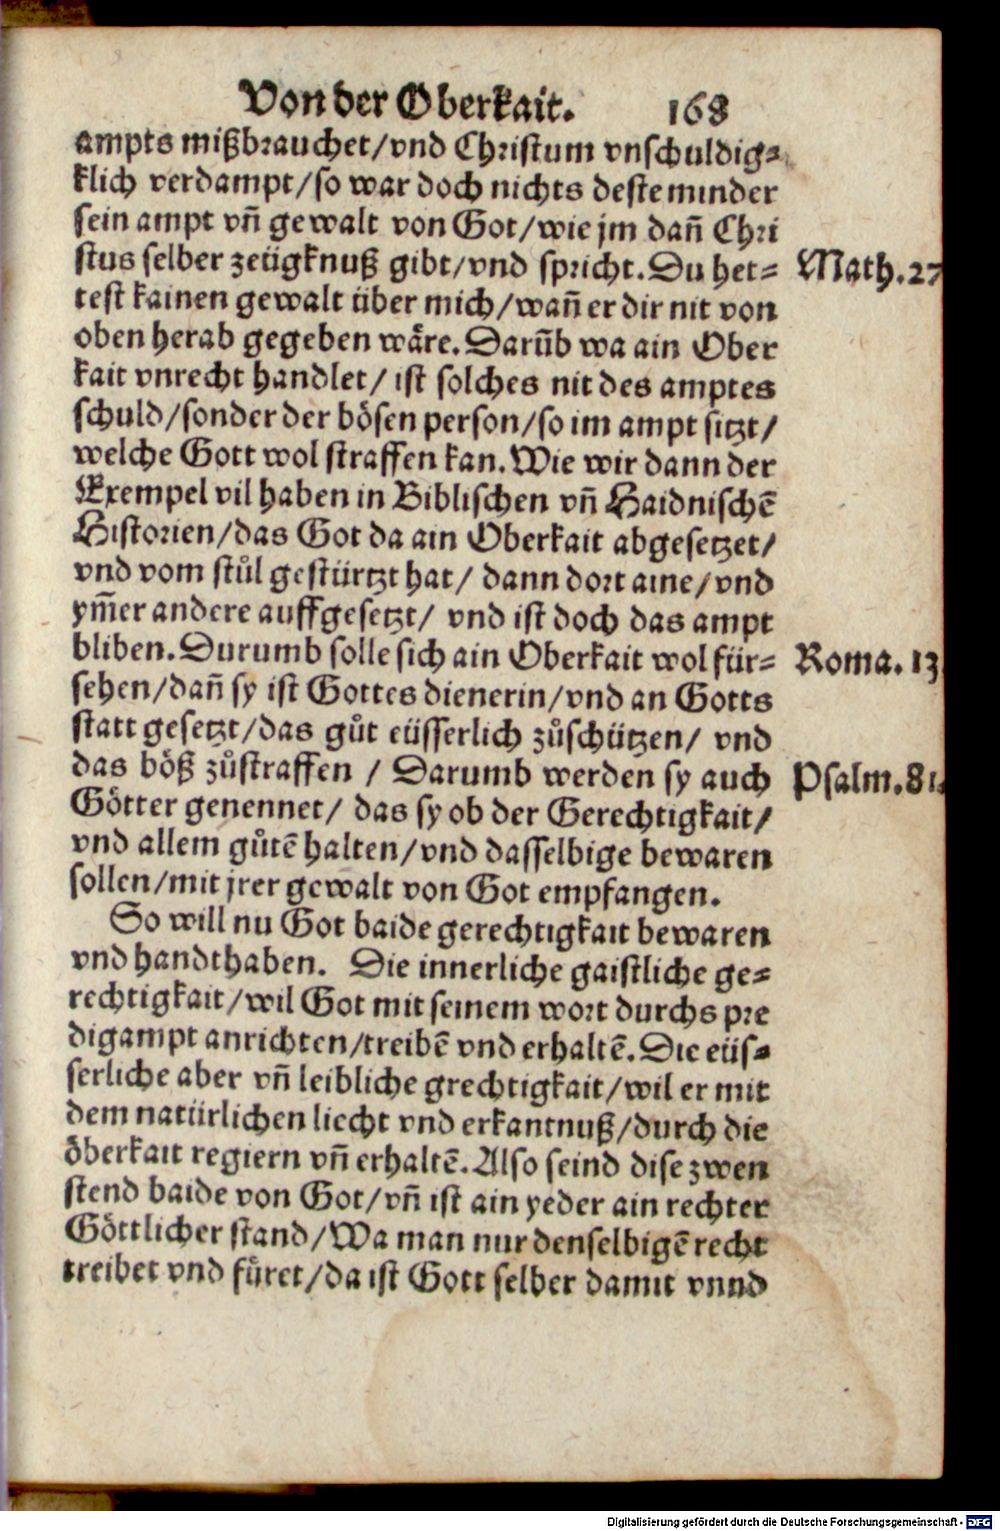 Von der Oberkait. 168
ampts mißbrauchet/vnd Christum vnschuldig⸗
klich verdampt/so war doch nichts deste minder
sein ampt vn̄ gewalt von Got/wie jm dan̄ Chri
stus selber zeügknuß gibt/vnd spricht. Du het⸗
Math. 27
test kainen gewalt über mich/wan̄ er dir nit von
oben herab gegeben wåre. Darūb wa ain Ober
kait vnrecht handlet/ ist solches nit des amptes
schuld/sonder der bösen person/so im ampt sitzt/
welche Gott wol straffen kan. Wie wir dann der
Exempel vil haben in Biblischen vn̄ Haidnischē
Historien/das Got da ain Oberkait abgesetzet/
vnd vom stůl gestürtzt hat/ dann dort aine/vnd
ym̄er andere auffgesetzt/ vnd ist doch das ampt
bliben. Durumb solle sich ain Oberkait wol für⸗
Roma. 13
sehen/dan̄ sy ist Gottes dienerin/vnd an Gotts
statt gesetzt/das gůt eüsserlich zůschützen/ vnd
das böß zůstraffen / Darumb werden sy auch
Psalm. 81.
Götter genennet/ das sy ob der Gerechtigkait/
vnd allem gůtē halten/vnd dasselbige bewaren
sollen/mit jrer gewalt von Got empfangen.
So will nu Got baide gerechtigkait bewaren
vnd handthaben. Die innerliche gaistliche ge⸗
rechtigkait/wil Got mit seinem wort durchs pre
digampt anrichten/treibē vnd erhaltē. Die eüs⸗
serliche aber vn̄ leibliche grechtigkait/wil er mit
dem natürlichen liecht vnd erkantnuß/durch die
öberkait regiern vn̄ erhaltē. Also seind dise zwen
stend baide von Got/vn̄ ist ain yeder ain rechter
Göttlicher stand/Wa man nur denselbigē recht
treibet vnd fůret/da ist Gott selber damit vnnd
Digitalisierung gefördert durch die Deutsche Forschungsgemeinschaft - DFG